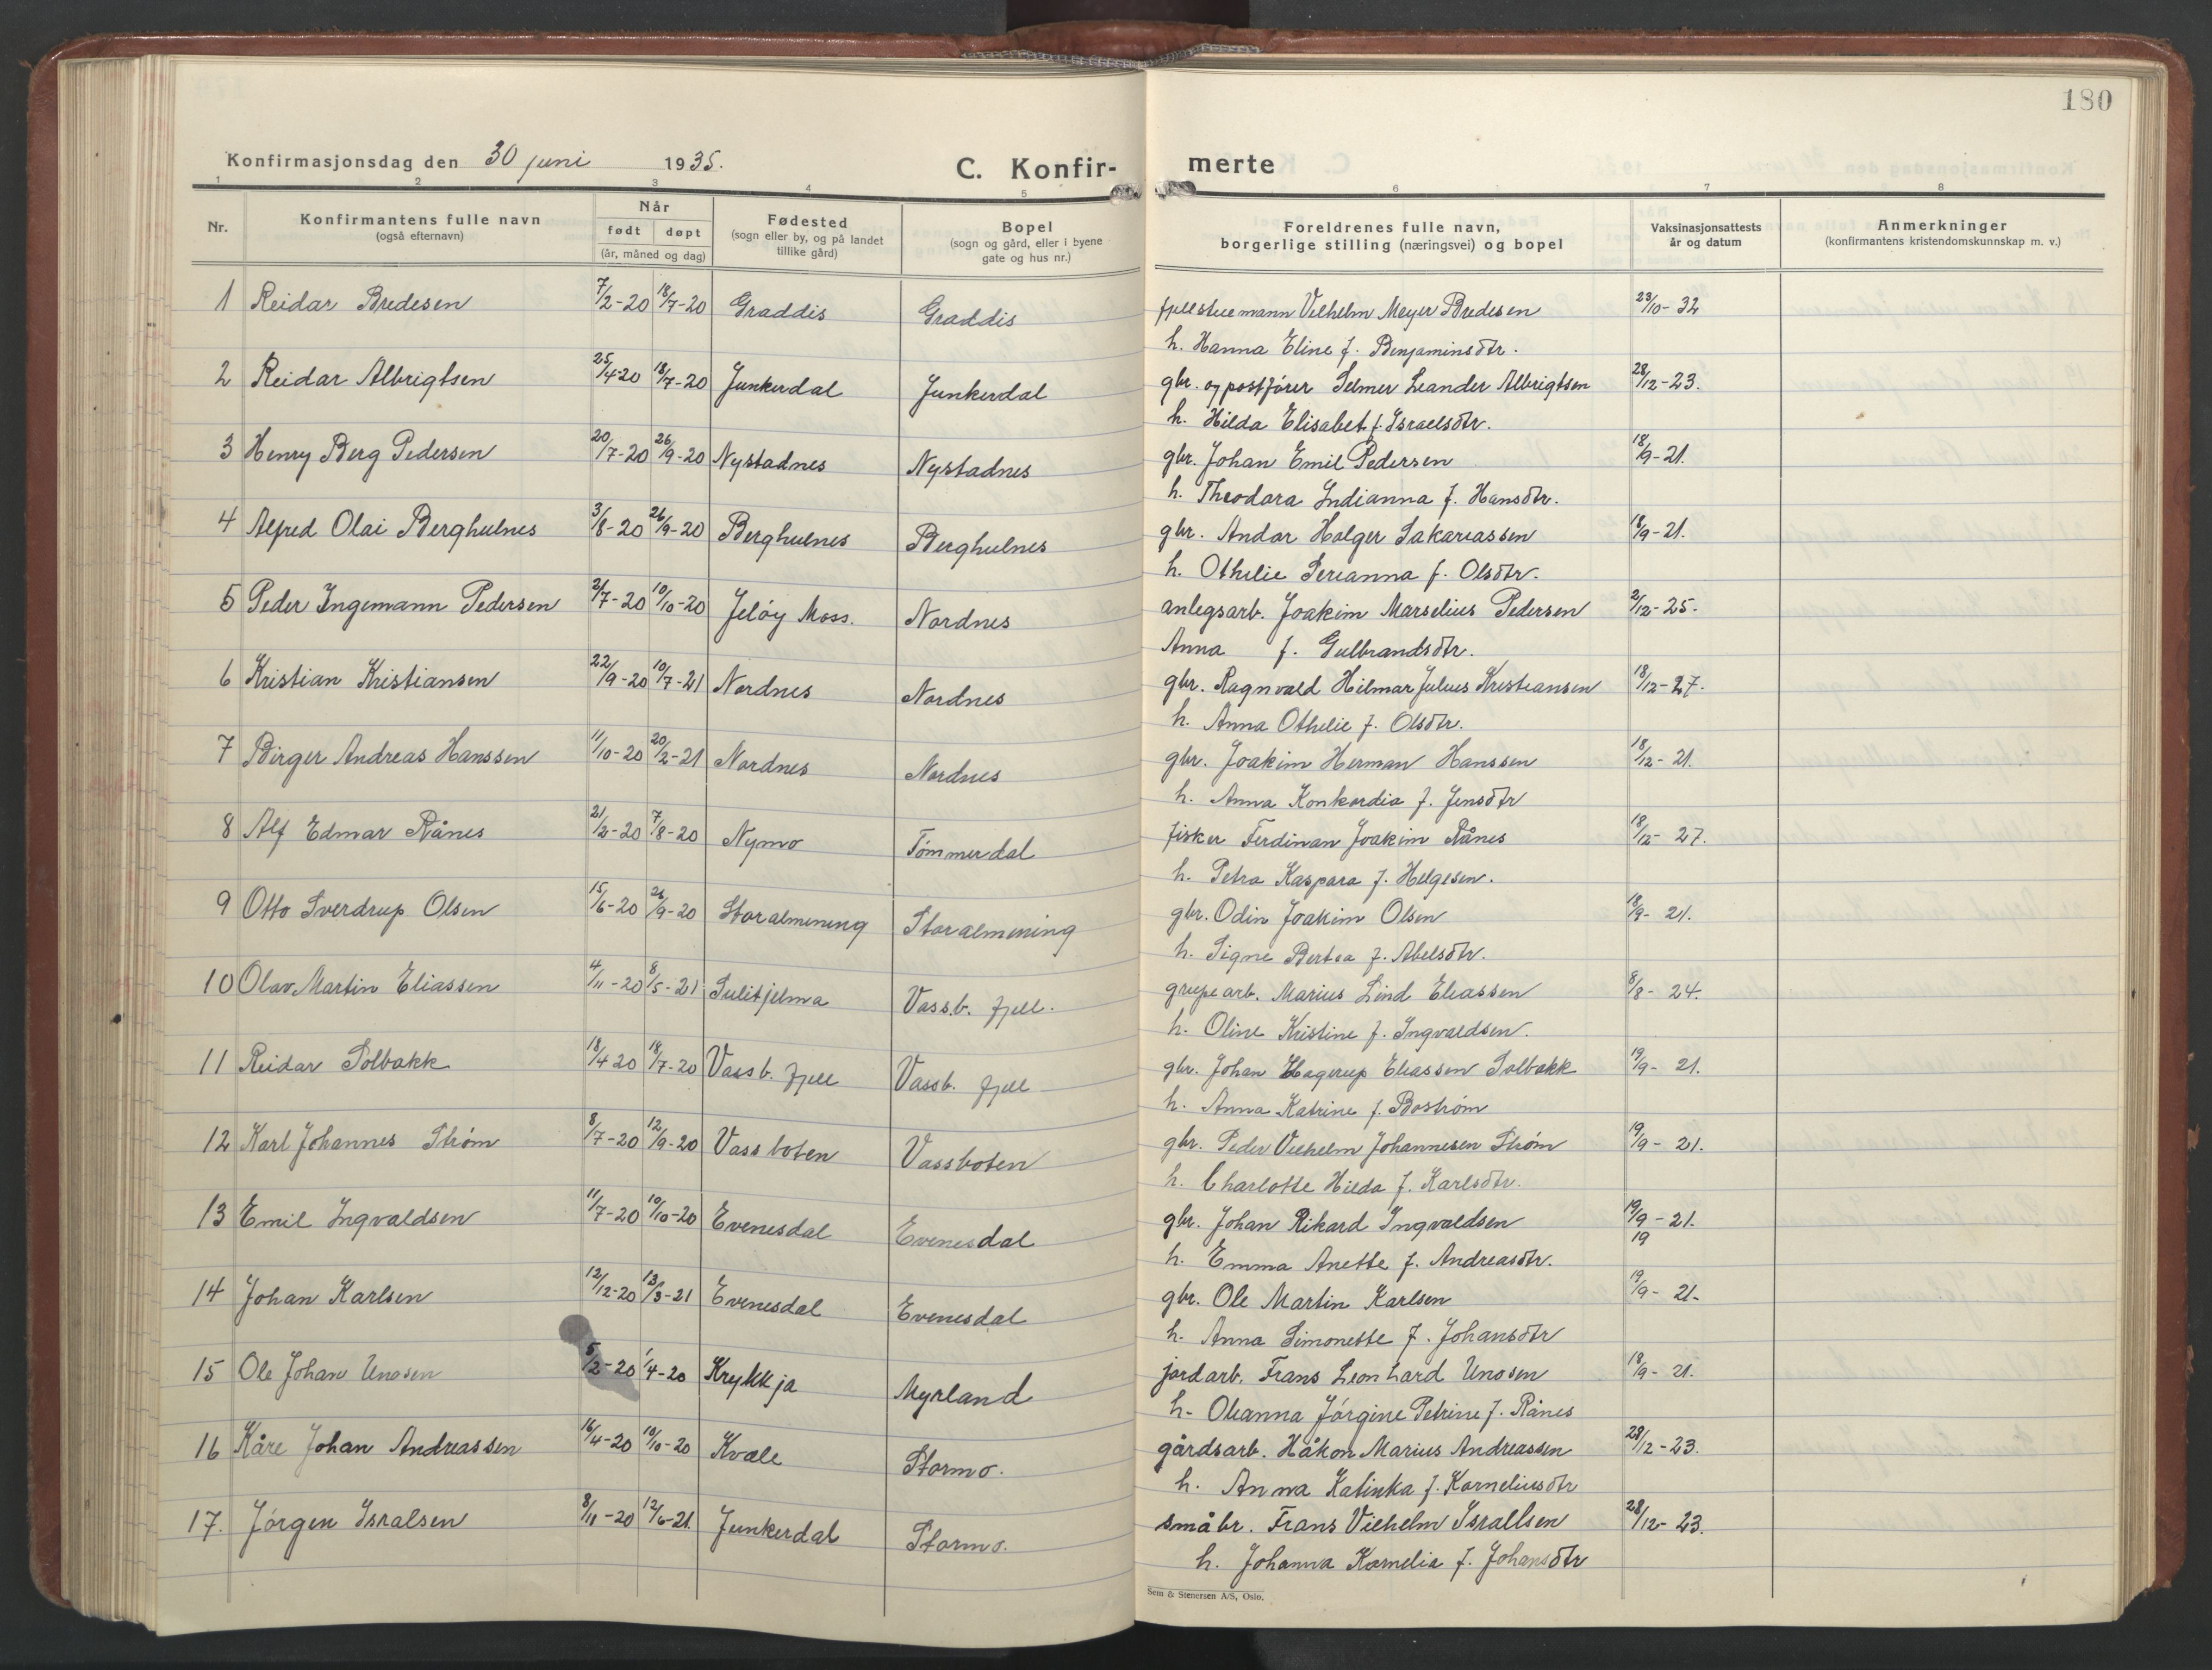 180
Konfirmasjonsdag den 30 juni 1935. C. Konfir- merte
1 2 3 4 5 6 7 8
Nr. Konfirmantens fulle navn (også efternavn) Når født døpt (år, måned og dag) Fødested (sogn eller by, og på landet tillike gård) Bopel (sogn og gård, eller i byene gate og hus nr.) Foreldrenes fulle navn, borgerlige stilling (næringsvei) og bopel Vaksinasjonsattests år og datum Anmerkninger (konfirmantens kristendomskunnskap m. v.)
1 Reidar Bredesen 7/2-20 18/7-20 Graddis Graddis fjellstuemann Vilhelm Meyer Bredesen 23/10-32
h. Hanna Eline f. Benjaminsdtr.
2 Reidar Albrigtsen 25/4-20 18/7-20 Junkerdal Junkerdal gbr. og postfører Selmer Leander Albrigtsen 28/12-23.
h. Hilda Elisabet f. Israelsdtr.
3 Henry Berg Pedersen 20/7-20 26/9-20 Nystadnes Nystadnes gbr. Johan Emil Pedersen 18/9-21.
h. Theodora Indianna f. Hansdtr.
4 Alfred Olai Berghulnes 3/8-20 26/9-20 Berghulnes Berghulnes gbr. Andor Holger Sakariassen 18/9-21.
h. Othilie Serianna f. Olsdtr.
5 Peder Ingemann Pedersen 21/7-20 10/10-20 Jeløy Moss. Nordnes anlegsarb. Joakim Marselius Pedersen 2/12-25.
Anna f. Gulbrandsdtr.
6 Kristian Kristiansen 22/9-20 10/7-21 Nordnes Nordnes gbr. Ragnvald Hilmar Julius Kristiansen 18/12-27.
h. Anna Othelie f. Olsdtr.
7 Birger Andreas Hanssen 11/10-20 20/2-21 Nordnes Nordnes gbr. Joakim Herman Hanssen 18/12-21.
h. Anna Konkordia f. Jensdtr
8 Alf Edmar Rånes 21/2-20 7/8-20 Nymo Tømmerdal fisker Ferdinan Joakim Rånes 18/12-27.
h. Petra Kaspara f. Helgesen.
9 Otto Sverdrup Olsen 15/6-20 26/9-20 Storalmening Storalmening gbr. Odin Joakim Olsen 18/9-21.
h. Signe Bertea f. Abelsdtr.
10 Olav Martin Eliassen 4/11-20 8/5-21 Sulitjelma Vassb. fjell. grupearb. Marius Lind Eliassen 8/8-24.
h. Oline Kristine f. Ingvaldsen.
11 Reidar Solbakk 18/4 20 18/7-20 Vassb. fjell Vassb. fjell gbr. Johan Hagerup Eliassen Solbakk 19/9-21.
h. Anna Katrine f. Bostrøm
12 Karl Johannes Strøm 8/7-20 12/9-20 Vassboten Vassboten gbr. Peder Vilhelm Johannesen Strøm 19/9-21.
h. Charlotte Hilda f. Karlsdtr.
13 Emil Ingvaldsen 11/7-20 10/10-20 Evenesdal Evenesdal gbr. Johan Rikard Ingvaldsen 19/9-21.
h. Emma Anette f. Andreasdtr. 19
14 Johan Karlsen 12/12-20 13/3-21 Evenesdal Evenesdal gbr. Ole Martin Karlsen 19/9-21-
h. Anna Simonette f. Johansdtr
15 Ole Johan Unosen 5/2-20 1/4-20 Krykkja Myrland jordarb. Frans Leonhard Unosen 18/9-21.
h- Oleanna Jørgine Petrine f. Rånes
16 Kåre Johan Andreassen 16/4-20 10/10-20 Kvæle Stormo. gårdsarb. Håkon Marius Andreassen 28/12-23.
h. Anna Katinka f. Korneliusdtr
17. Jørgen Isralsen 8/11-20 12/6-21. Junkerdal Stormo. småbr. Frans Vilhelm Isralsen 28/12-23.
h. Johanna Kornelia f. Johansdtr
Sem & Stenersen A/S, Oslo.